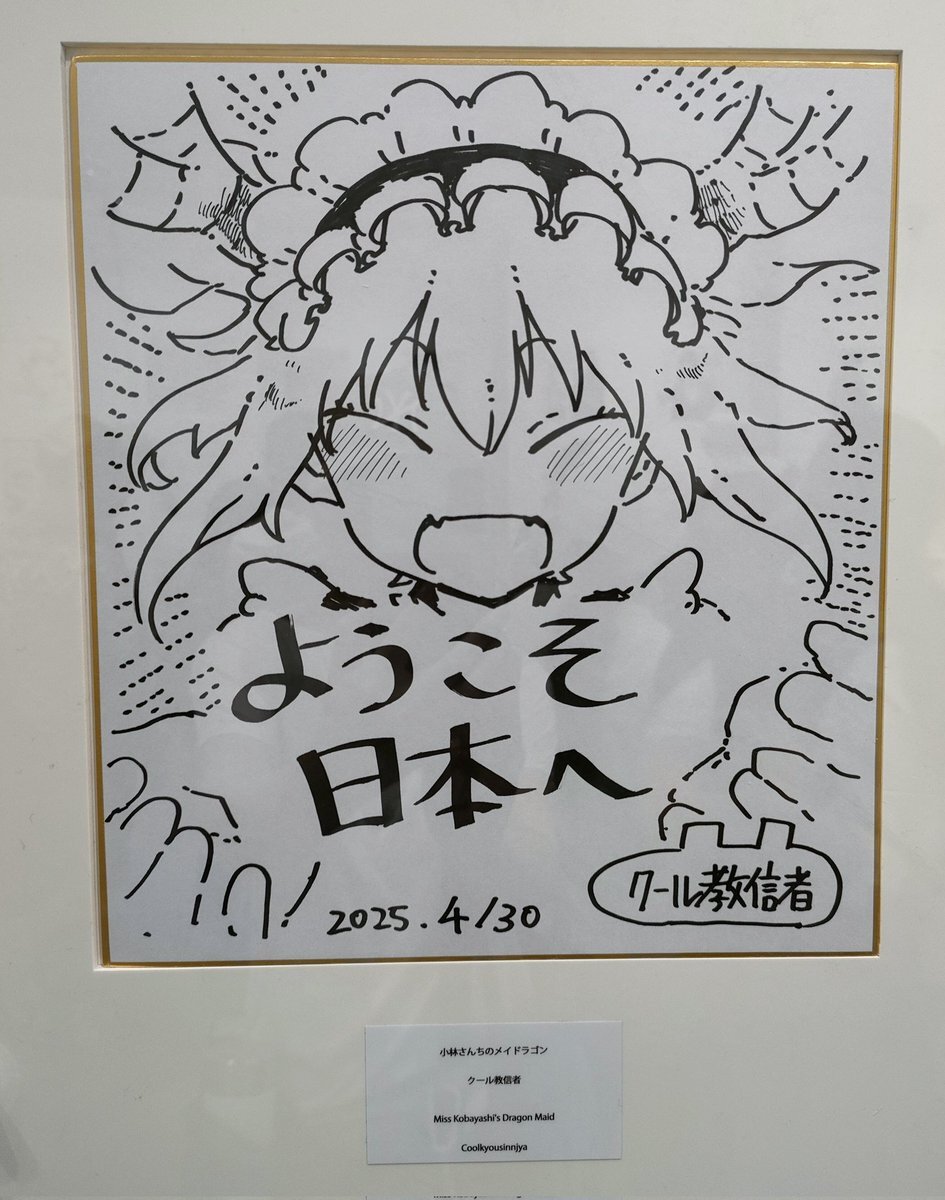 ようこそ
日本へ
2025.4/30
クール教信者
小林さんちのメイドラゴン
クール教信者
Miss Kobayashi's Dragon Maid
Coolkyousinnjya